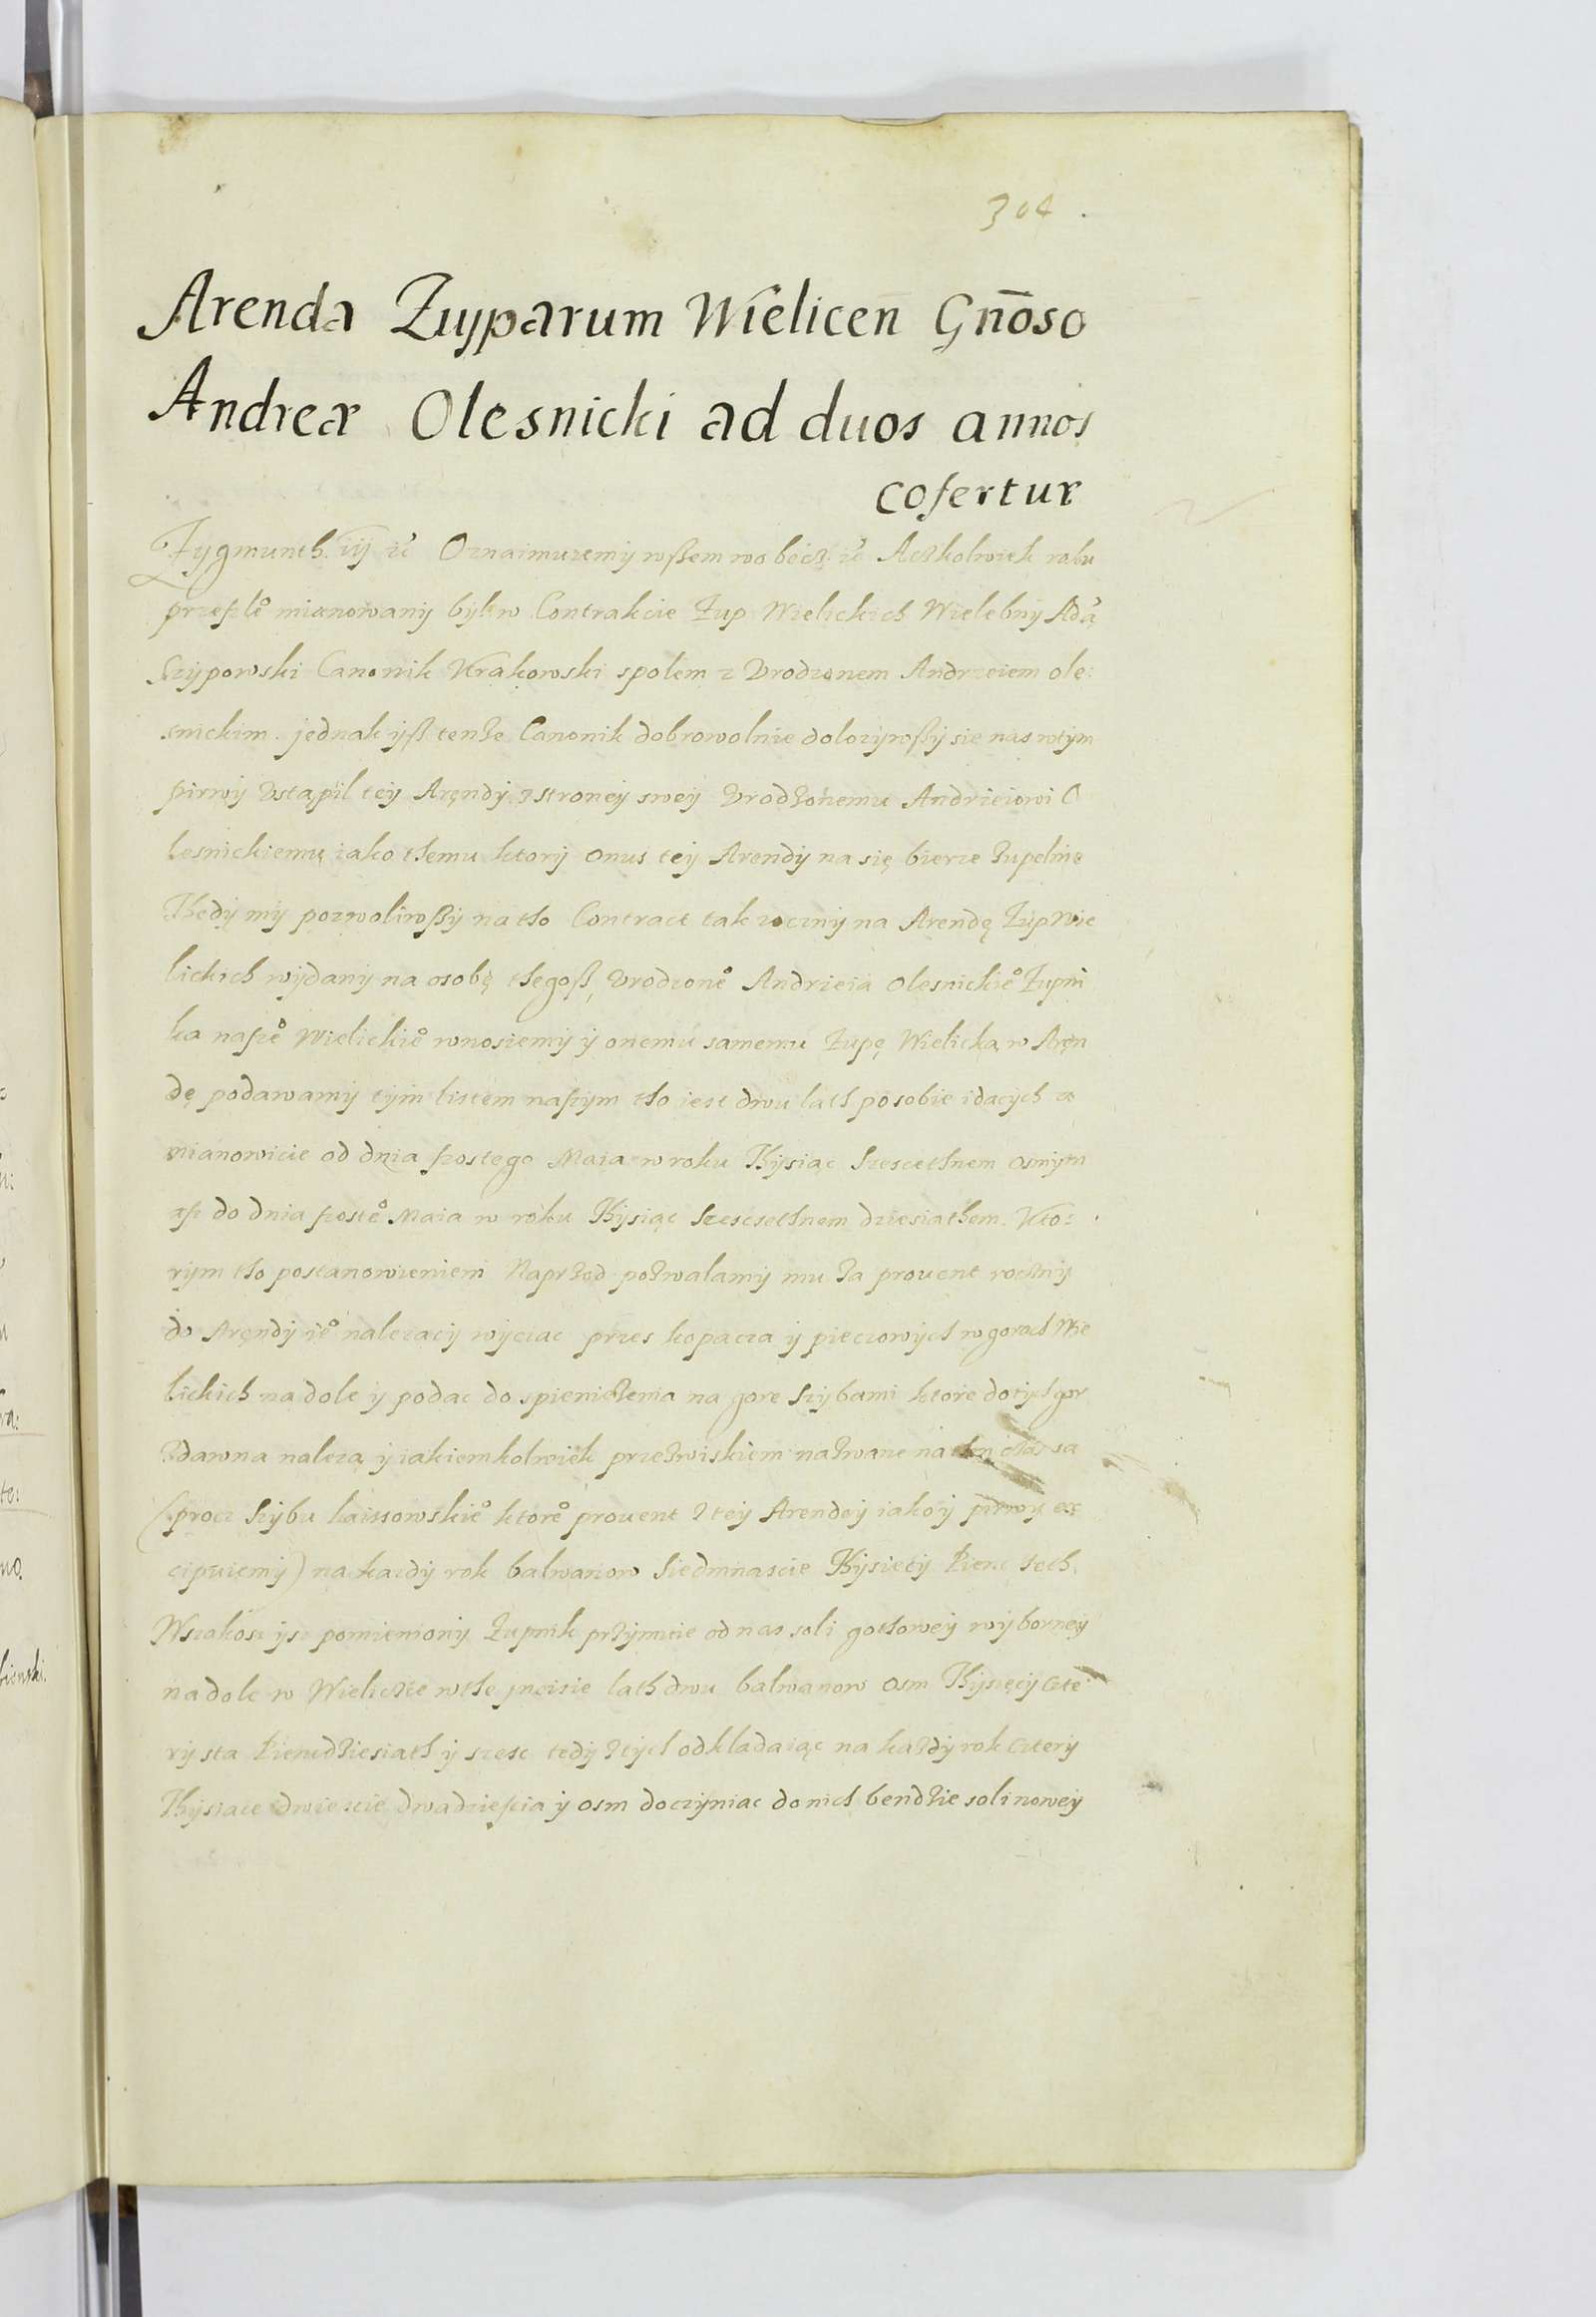 304.
Arenda Zuyparum Wielicen Gnoso
Andreæ Olesnicki ad duos annos
cofertur
Zygmunth iij ić Oznaimuiemy wßem wobecz ić Aczkolwiek roku
przeszłº mianowany był w Contrakcie Zup Wielickich Wielebny Adā
Szyporwski Canonik Krakowski spolem z Vrodzonem Andrzeiem ole:
snickim. jednak yß tenże Canonik dobrowolnie dolozywßy sie nas wtym
pirwy Vstąpil tey Aręndy z stroney swey Vrodzonemu Andrzeiowi O
lesnickiemu iako themu ktory onus tey Arendy na się bierze zupelnie
Thedy my pozwoliwßy na tho Contract tak roczny na Arendę Zup Wie
lickich wydany na osobę thegoß Vrodzonº Andrzeia Olesnickiº Zupni
ka naszº Wielickiº wnosiemy y onemu samemu Zupę Wielicką w Aręn
dę podawamy tym listem naszym tho iest dwu lath po sobie idacych a
mianowicie od dnia szostego Maia w roku Thysiąc Szescsethnem osmym
asz do dnia szostº Maia w roku Thysiąc Szescsethnem dziesiathem. Kto:
rym tho postanowieniem Naprzod pozwalamy mu za prouent roczny
do Aręndy iº nalezacy wyciac przes kopacza y pieczowych w gorach Wie
lickich na dole y podac do spieniezenia na gore Szybami ktore do tych gor
zdawna naleza y iakiemkolwiek przezwiskiem nazwane na then czas sa
(procz Szybu Laissowskiº ktorº prouent z tey Arendey iako y pirwy ex
cipuiemy) na kazdy rok balwanow Siedmnascie Thysiecy Pienc seth.
Wszakosz ysz pomieniony Zupnik przymuie od nas soli gothowey wyborney
na dole w Wieliczce w the precisie lath dwu balwanow osm Thysięcy Czte
ry sta Piendziesiath y szesc tedy z tych odkladaiąc na kazdy rok Cztery
Thysiace dwiescie dwadziescia y osm doczyniac do nich bendzie soli nowey